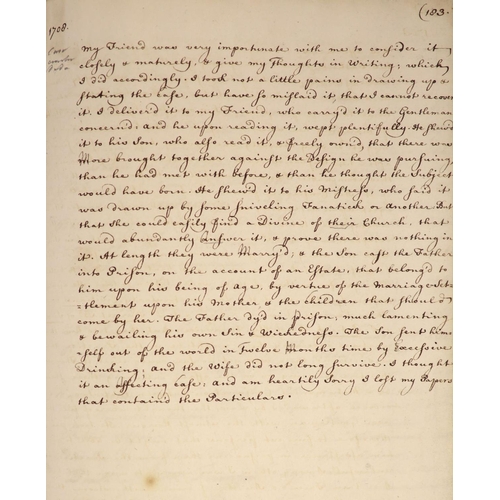 (183.
1708.
My Friend was very importunate with me to consider it
closely & maturely, & give my Thoughts in Writing; which
I did accordingly. I took not a little pains in drawing up &
stating the Case, but have so mislaid it, that I cannot recover
it. I deliver'd it to my Friend, who carry'd it to the Gentleman
concern'd; and he upon reading it, wept plentifully. He shew'd
it to his Son, who also read it, & freely own'd, that there was
More brought together against the Design he was pursuing
than he had met with before, & than he thought the Subject
would have born. He shew'd it to his Mistress, who said it
was drawn up by some sniveling Fanatick or Another. But
that she could easily find a Divine of their Church, that
would abundantly Answer it, & prove there was nothing in
it. At length they were Marry'd; & the Son cast the Father
into Prison, on the account of an Estate, that belong'd to
him upon his being of Age, by vertue of the Marriage Set-
=tlement upon his Mother & the Children that should
come by her. The Father dy'd in Prison, much lamenting
& bewailing his own Sin & Wickedness. The Son sent him-
=self out of the world in Twelve Months time by Excessive
Drinking; and the Wife did not long survive. I thought
it an affecting Case; and am heartily Sorry I lost my Papers
that containd the Particulars.